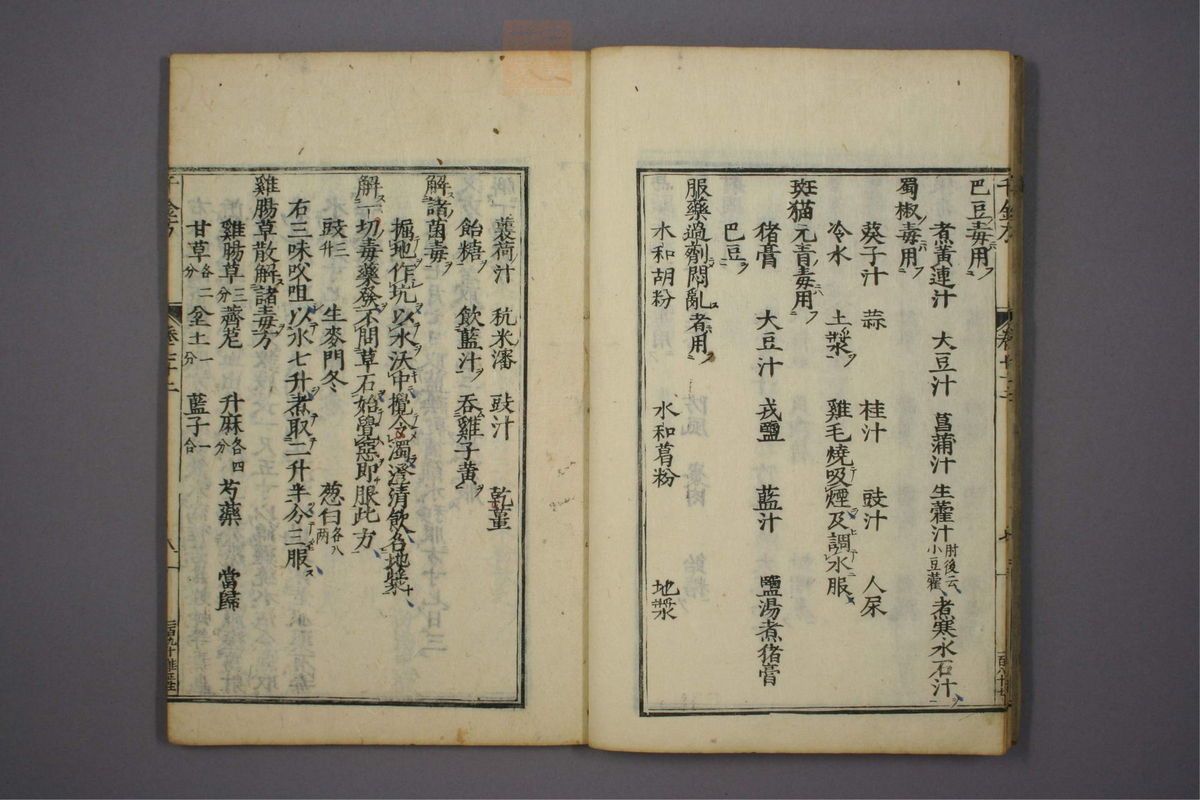 巴豆毒用
煮黃連汁 大豆汁 菖蒲汁 生藿汁肘後云小豆藿 煮寒水石汁
蜀椒毒用
葵子汁 蒜 桂汁 豉汁 人尿
冷水 土漿 雞毛燒吸煙及調水服
斑猫元青毒用
猪膏 大豆汁 戎鹽 藍汁 鹽湯煮猪膏
巴豆
服藥過劑悶亂者用
水和胡粉 水和葛粉 地漿
蘘荷汁 秔米瀋 豉汁 乾薑
飴糖 飲藍汁 吞雞子黃
解諸菌毒
掘地作坑以水沃中攪令濁澄清飲名地漿
解一切毒藥發不問草石始覺惡即服此方
豉三升 生麥門冬 葱白各八兩
右三味㕮咀以水七升煮取二升半分三服
雞腸草散解諸毒方
雞腸草三分 薺苨 升麻各四分 芍藥 當歸
甘草各二分 坌土一分 藍子一合